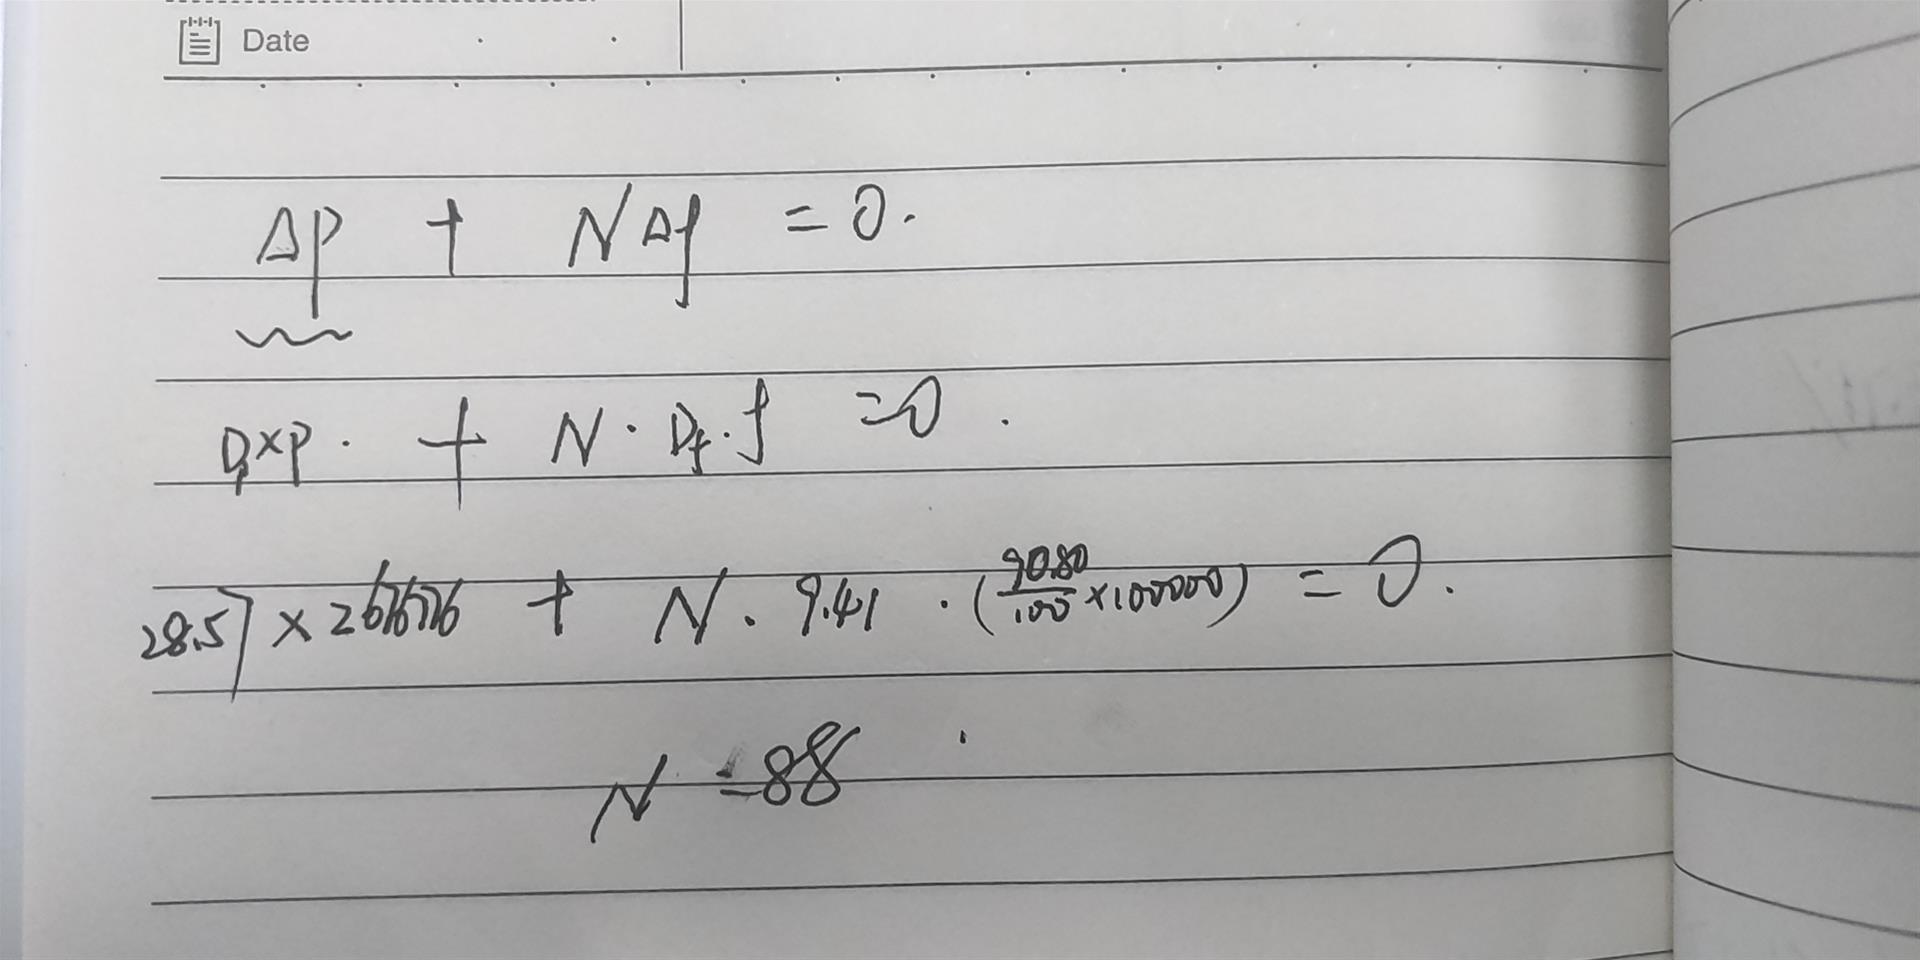 Date
ΔP + NΔf = 0.
Dp×P. + N·Df·f = 0.
28.57 × 2676776 + N. 9.41 · (90.80/100 × 100000) = 0.
N = 88